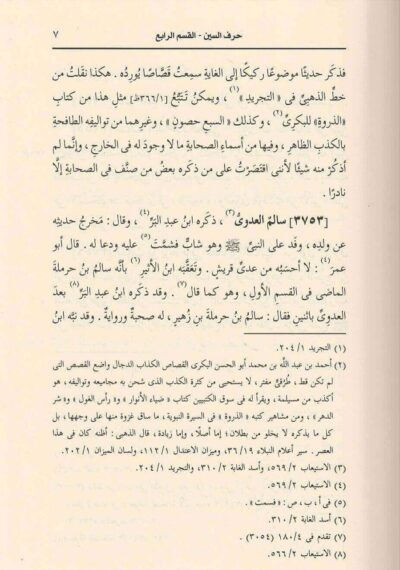 حرف السين - القسم الرابع ٧
فذكَر حديثًا موضوعًا ركيكًا إلى الغايةِ سمِعتُ قَصَّاصًا يُورِدُه . هكذا نقَلتُ من
خطِّ الذهبيِّ فى « التجريدِ »(١) ، ويمكنُ تَتَبُّعُ [٣٦٦/١ظ] مثلِ هذا من كتابِ
« الذروةِ » للبكرىِّ(٢) ، وكذلك « السبع حصونٍ » ، وغيرِهما من تواليفِه الطافحةِ
بالكذبِ الظاهرِ ، وفيها من أسماءِ الصحابةِ ما لا وجودَ له فى الخارجِ ، وإنَّما لم
أذكُرْ منه شيئًا لأننى اقتصَرْتُ على من ذكَره بعضُ من صنَّف فى الصحابةِ إلَّا
نادرًا .
[٣٧٥٣] سالمٌ العدوىُّ(٣) ، ذكَره ابنُ عبدِ البَرِّ(٤) ، وقال : مَخرجُ حديثِه
عن ولدِه ، وفَد على النبىِّ ﷺ وهو شابٌّ فشمَّتَ(٥) عليه ودعا له . قال أبو
عمرَ(٤) : لا أحسَبُه من عدىِّ قريشٍ . وتَعقَّبَه ابنُ الأثيرِ(٦) بأنَّه سالمُ بنُ حرملةَ
الماضى فى القسمِ الأولِ ، وهو كما قال(٧) . وقد ذكَره ابنُ عبدِ البَرِّ(٨) بعدَ
العدوىِّ باثنينِ فقال : سالمُ بنُ حرملةَ بنِ زُهيرٍ ، له صحبةٌ وروايةٌ . وقد نبَّه ابنُ
(١) التجريد ٢٠٤/١.
(٢) أحمد بن عبد اللَّه بن محمد أبو الحسن البكرى القصاص الكذاب الدجال واضع القصص التى
لم تكن قط ، طُرُقىٌّ مفتر ، لا يستحيى من كثرة الكذب الذى شحن به مجاميعه وتواليفه ، هو
أكذب من مسيلمة ، ويقرأ له فى سوق الكتبيين كتاب « ضياء الأنوار » و« رأس الغول » و« شر
الدهر » ، ومن مشاهير كتبه « الذروة » فى السيرة النبوية ، ما ساق غزوة منها على وجهها ، بل
كل ما يذكره لا يخلو من بطلان ؛ إما أصلًا ، وإما زيادة ، قال الذهبى : أظنه كان فى هذا
العصر . سير أعلام النبلاء ٣٦/١٩ ، وميزان الاعتدال ١١٢/١ ، ولسان الميزان ٢٠٢/١ .
(٣) الاستيعاب ٥٦٩/٢ ، وأسد الغابة ٣١٠/٢ ، والتجريد ٢٠٤/١ .
(٤) الاستيعاب ٥٦٩/٢ .
(٥) فى أ ، ب ، ص : « فسمت » .
(٦) أسد الغابة ٣١٠/٢ .
(٧) تقدم فى ١٨٠/٤ (٣٠٥٤) .
(٨) الاستيعاب ٥٦٦/٢ .